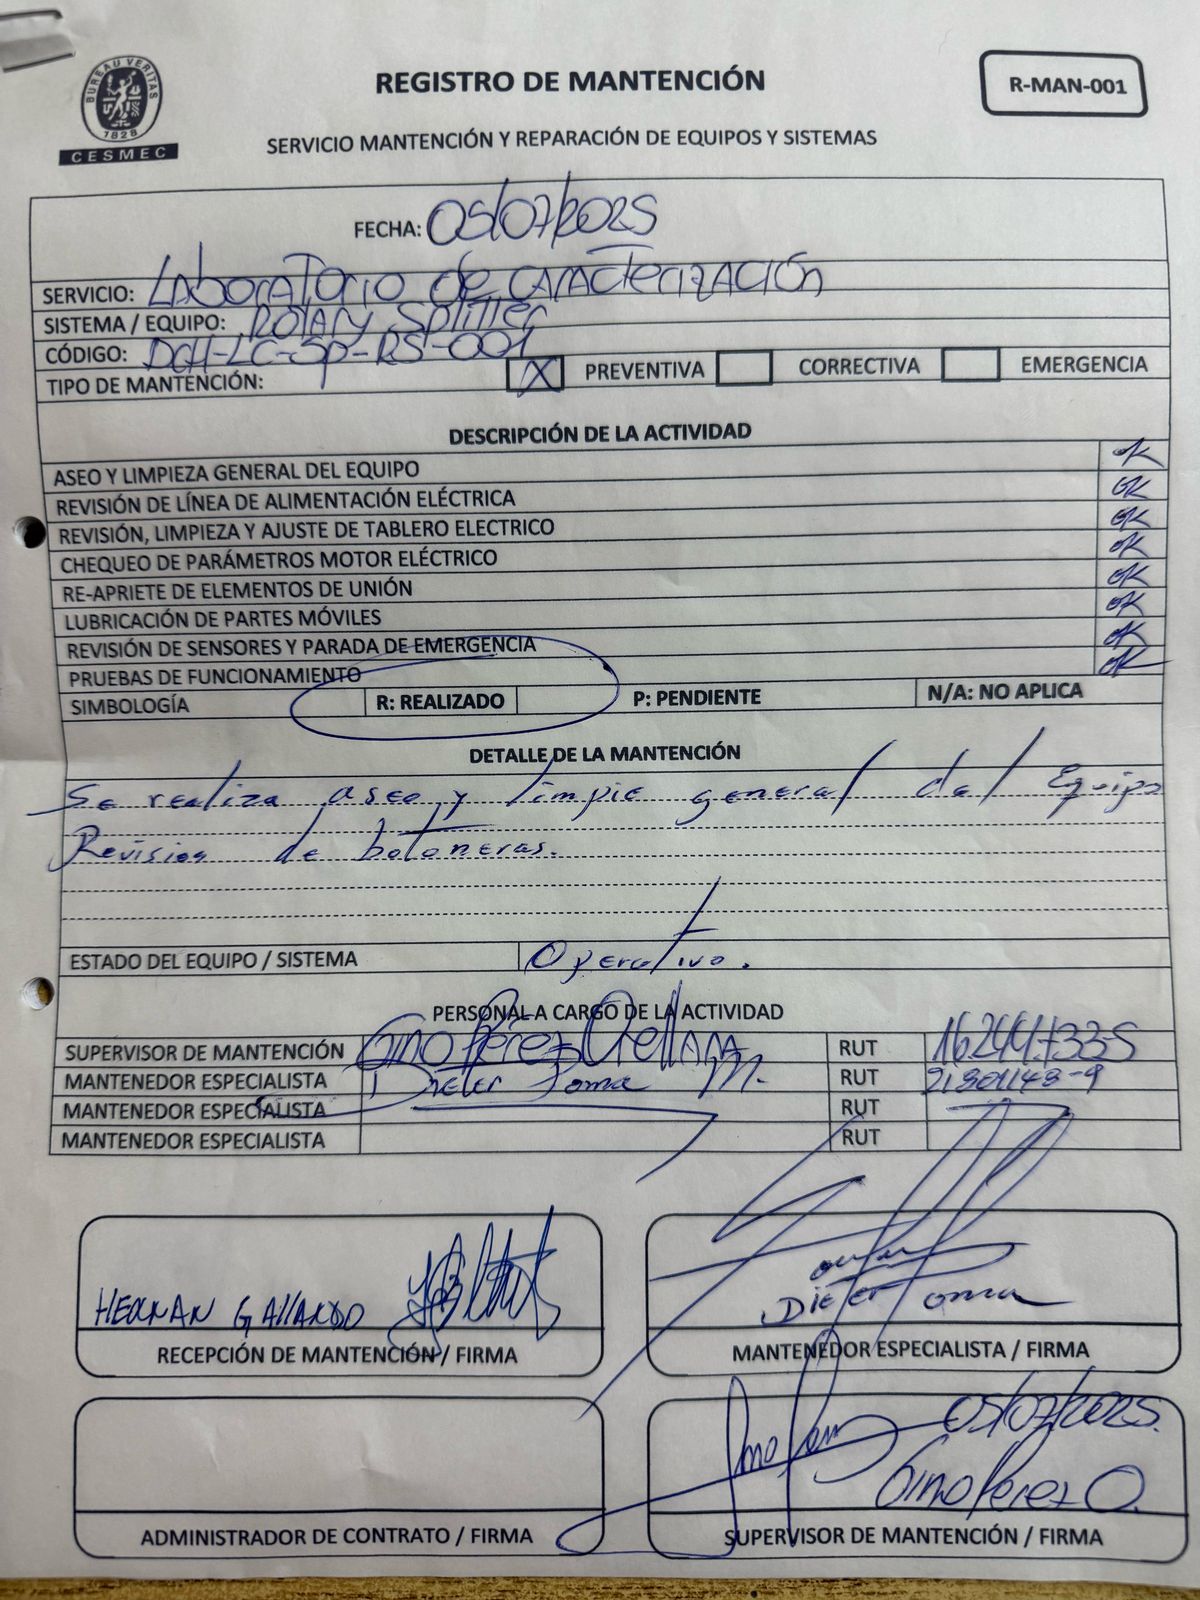 BUREAU VERITAS
1828
CESMEC
REGISTRO DE MANTENCIÓN
R-MAN-001
SERVICIO MANTENCIÓN Y REPARACIÓN DE EQUIPOS Y SISTEMAS
FECHA: 05/07/2025
SERVICIO: Laboratorio de Caracterización
SISTEMA / EQUIPO: Rotary Splitter
CÓDIGO: DCH-LC-SP-RS-001
TIPO DE MANTENCIÓN: X PREVENTIVA CORRECTIVA EMERGENCIA
DESCRIPCIÓN DE LA ACTIVIDAD
ASEO Y LIMPIEZA GENERAL DEL EQUIPO OK
REVISIÓN DE LÍNEA DE ALIMENTACIÓN ELÉCTRICA OK
REVISIÓN, LIMPIEZA Y AJUSTE DE TABLERO ELECTRICO OK
CHEQUEO DE PARÁMETROS MOTOR ELÉCTRICO OK
RE-APRIETE DE ELEMENTOS DE UNIÓN OK
LUBRICACIÓN DE PARTES MÓVILES OK
REVISIÓN DE SENSORES Y PARADA DE EMERGENCIA OK
PRUEBAS DE FUNCIONAMIENTO OK
SIMBOLOGÍA R: REALIZADO P: PENDIENTE N/A: NO APLICA
DETALLE DE LA MANTENCIÓN
Se realiza aseo y limpie general del Equipo
Revision de botoneras.
ESTADO DEL EQUIPO / SISTEMA Operativo.
PERSONAL A CARGO DE LA ACTIVIDAD
SUPERVISOR DE MANTENCIÓN Gino Pérez Orellana RUT 16244733-5
MANTENEDOR ESPECIALISTA Dieter Toma M. RUT 21301148-9
MANTENEDOR ESPECIALISTA RUT
MANTENEDOR ESPECIALISTA RUT
HERNAN GALLARDO
RECEPCIÓN DE MANTENCIÓN / FIRMA
Dieter Toma
MANTENEDOR ESPECIALISTA / FIRMA
ADMINISTRADOR DE CONTRATO / FIRMA
05/07/2025.
Gino Pérez O.
SUPERVISOR DE MANTENCIÓN / FIRMA